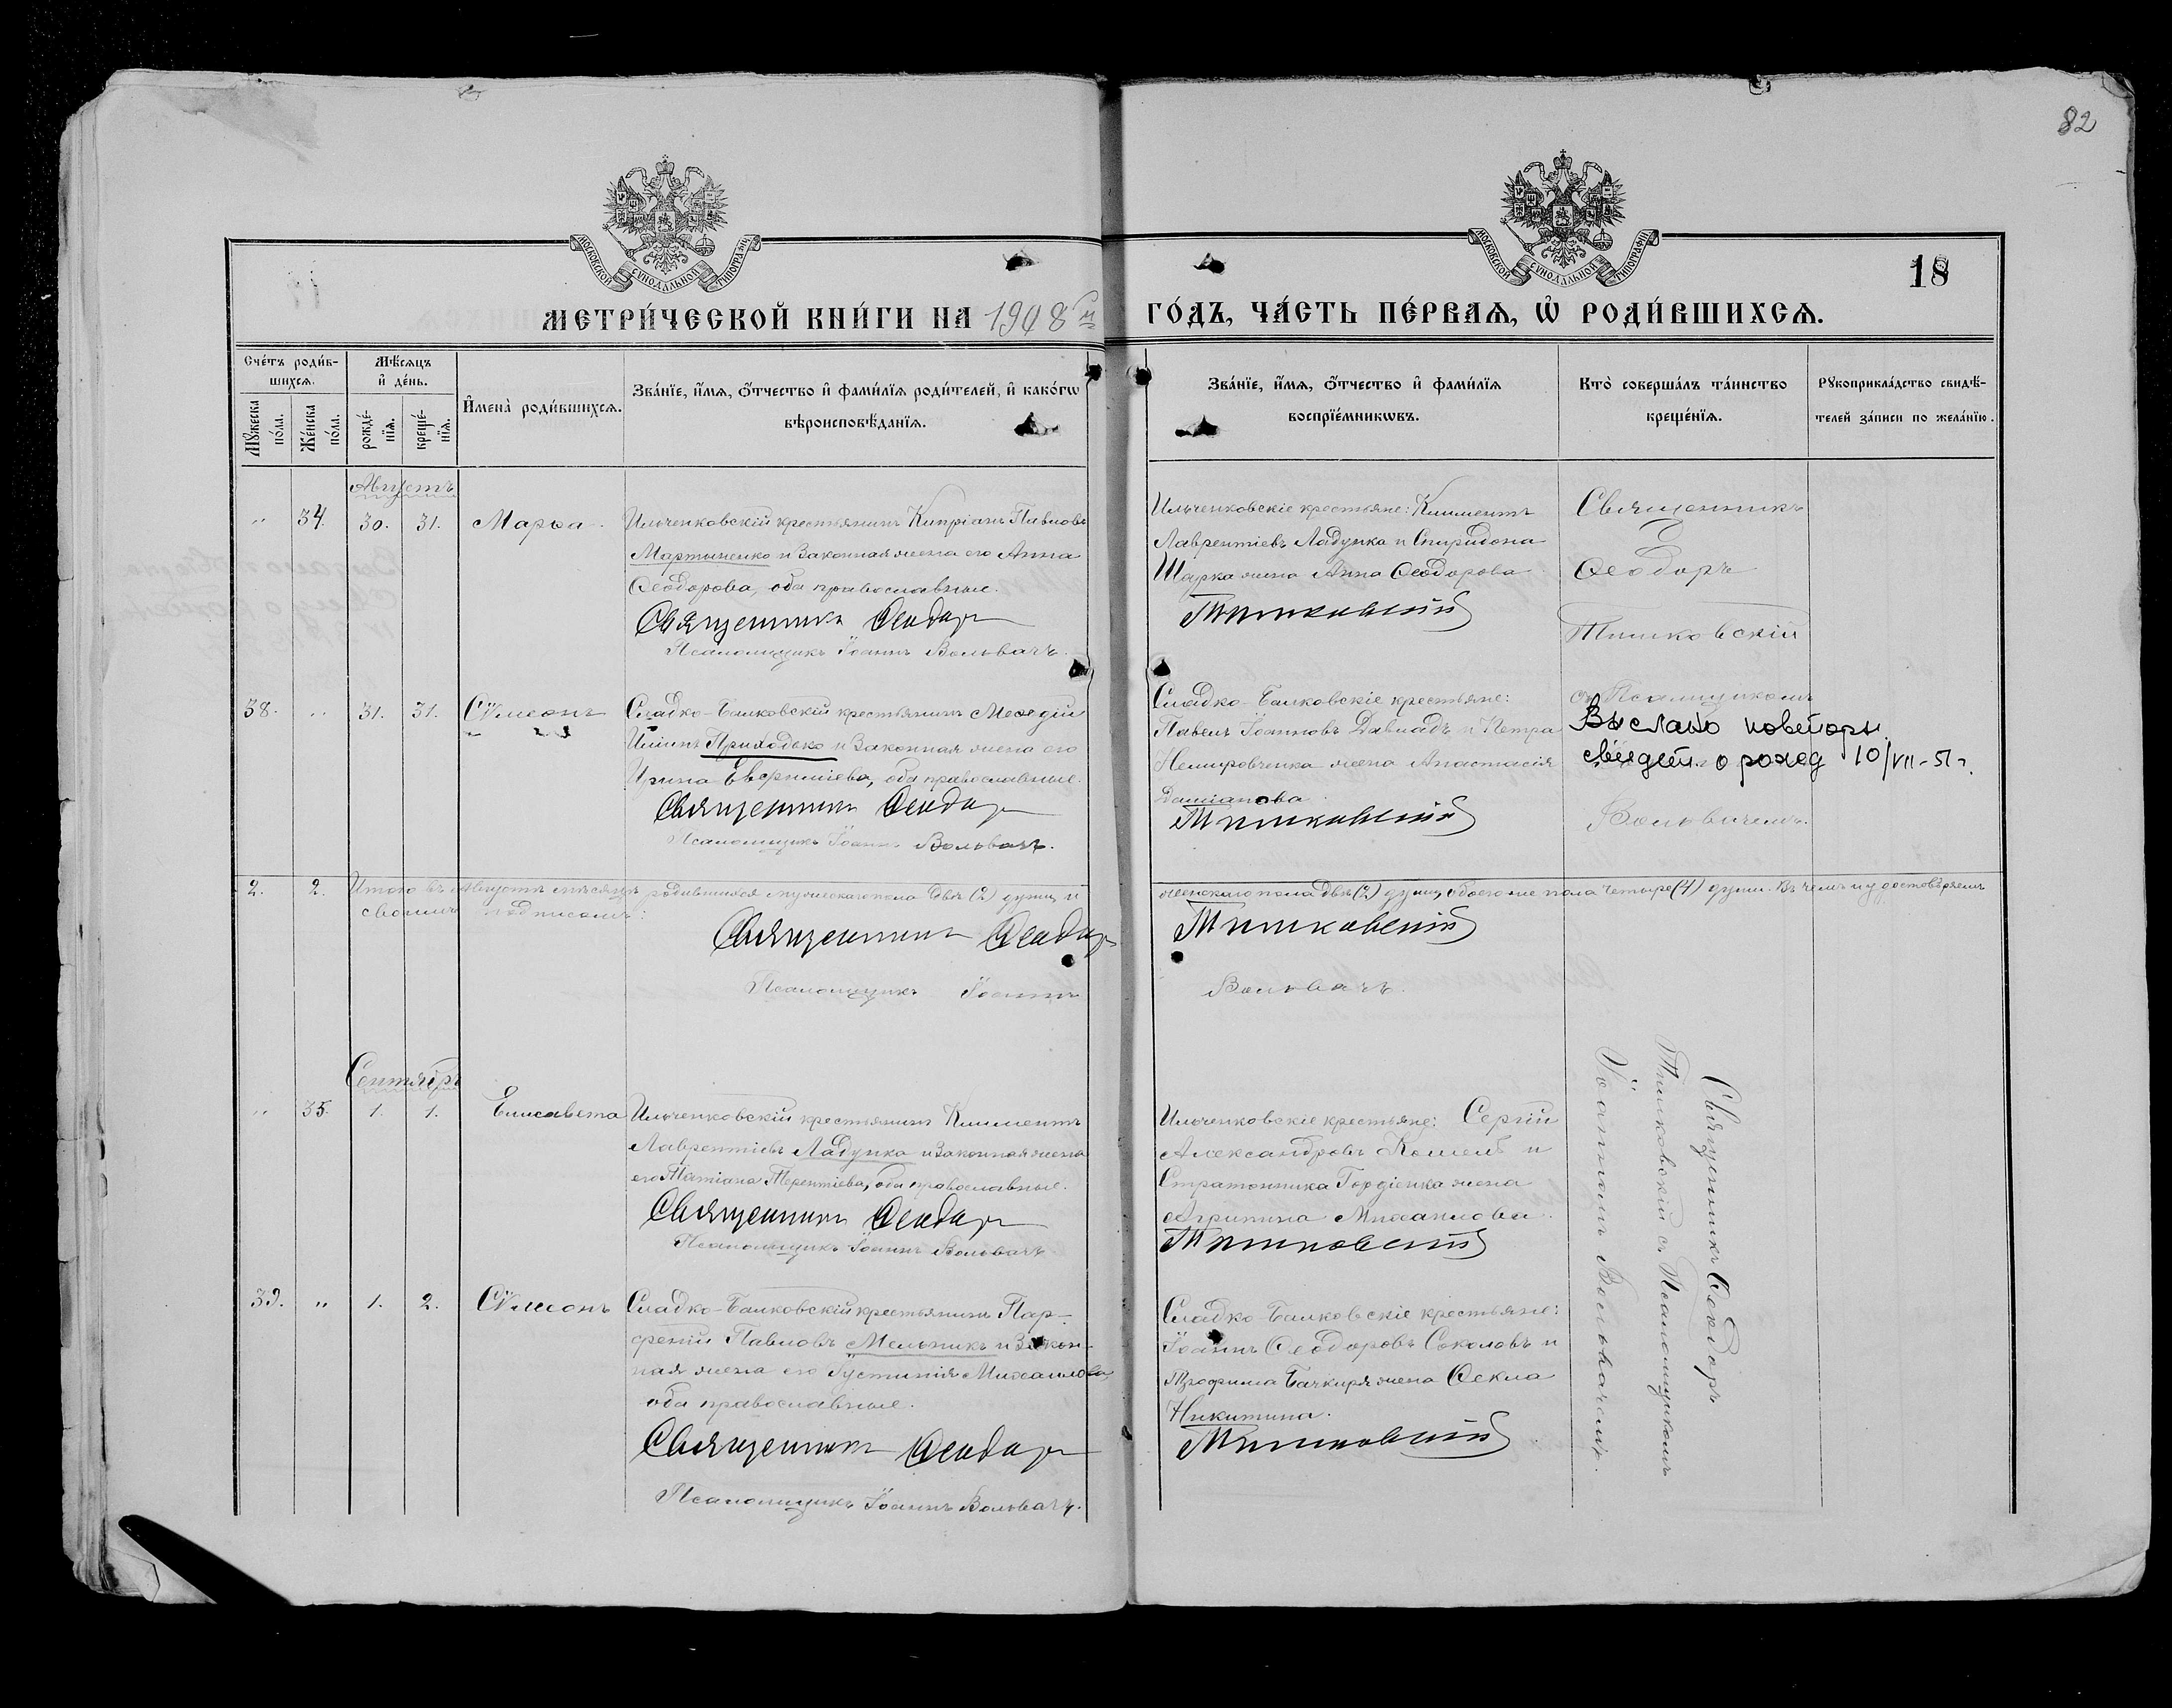 82
МОСКОВСКОЙ СѴНОДАЛЬНОЙ ТИПОГРАФІИ
МОСКОВСКОЙ СѴНОДАЛЬНОЙ ТИПОГРАФІИ
18
МЕТРИ́ЧЕСКОЙ КНИ́ГИ НА 1908 й
ГО́ДЪ, ЧА́СТЬ ПЕ́РВАѦ, Ѡ҆ РОДИ́ВШИХСѦ.
Сче́тъ роди́в-
шихсѧ.
Мѣ́сѧцъ
и҆ де́нь.
Мꙋ́жеска
по́ла.
Же́нска
по́ла.
рожде́-
нїѧ.
креще́-
нїѧ.
И҆мена̀ роди́вшихсѧ.
Зва́нїе, и҆́мѧ, ѻ҆́тчество и҆ фами́лїѧ роди́телей, и҆ како́гѡ
вѣроисповѣ́данїѧ.
Зва́нїе, и҆́мѧ, ѻ҆́тчество и҆ фами́лїѧ
воспрїе́мникѡвъ.
Кто̀ соверша́лъ та́инство
креще́нїѧ.
Рꙋкоприкла́дство свидѣ́-
телей за́писи по жела́нїю.
Августъ
" 34. 30. 31. Марѳа.
Ильченковскій крестьянинъ Кипріанъ Павловъ
Мартыненко и законная жена его Анна
Ѳеодорова, оба православные.
Священникъ Ѳеодоръ
Псаломщикъ Іоаннъ Вольвачъ.
Ильченковскіе крестьяне: Климентъ
Лаврентіевъ Ладунка и Спиридона
Шарка жена Анна Ѳеодорова
Тишковскій
Священникъ
Ѳеодоръ
Тишковскій
38. " 31. 31. Сѵмеонъ
Сладко-Балковскій крестьянинъ Меѳодій
Иліинъ Приходько и законная жена его
Ирина Евѳиміева, оба православные.
Священникъ Ѳеодоръ
Псаломщикъ Іоаннъ Вольвачъ.
Сладко-Балковскіе крестьяне:
Павелъ Іоанновъ Давиадъ и Петра
Немировченка жена Анастасія
Даміанова.
Тишковскій
съ Псаломщикомъ
Выслано повторн.
свидет. о рожд 10/VII-51г.
Вольвачемъ.
2. 2. Итого въ Августѣ мѣсяцѣ родившихся мужескаго пола двѣ (2) души и
женскаго пола двѣ (2) души, обоего же пола четыре (4) души. Въ чемъ и удостовѣряемъ
своими подписями:
Священникъ Ѳеодоръ
Тишковскій
Псаломщикъ Іоаннъ
Вольвачъ.
Сентябрь
" 35. 1. 1. Елисавета
Ильченковскій крестьянинъ Климентъ
Лаврентіевъ Ладунка и законная жена
его Татіана Терентіева, оба православные.
Священникъ Ѳеодоръ
Псаломщикъ Іоаннъ Вольвачъ
Ильченковскіе крестьяне: Сергій
Александровъ Кошель и
Стратонника Гордіенка жена
Агрипина Михаилова.
Тишковскій
Священникъ Ѳеодоръ
Тишковскій съ Псаломщикомъ
Іоанномъ Вольвачемъ.
39. " 1. 2. Сѵмеонъ
Сладко-Балковскій крестьянинъ Пар-
ѳеній Павловъ Мельникъ и закон-
ная жена его Іустинія Михаилова,
оба православные.
Священникъ Ѳеодоръ
Псаломщикъ Іоаннъ Вольвачъ.
Сладко-Балковскіе крестьяне:
Іоаннъ Ѳеодоровъ Соколовъ и
Трофима Бачкиря жена Ѳекла
Никитина.
Тишковскій